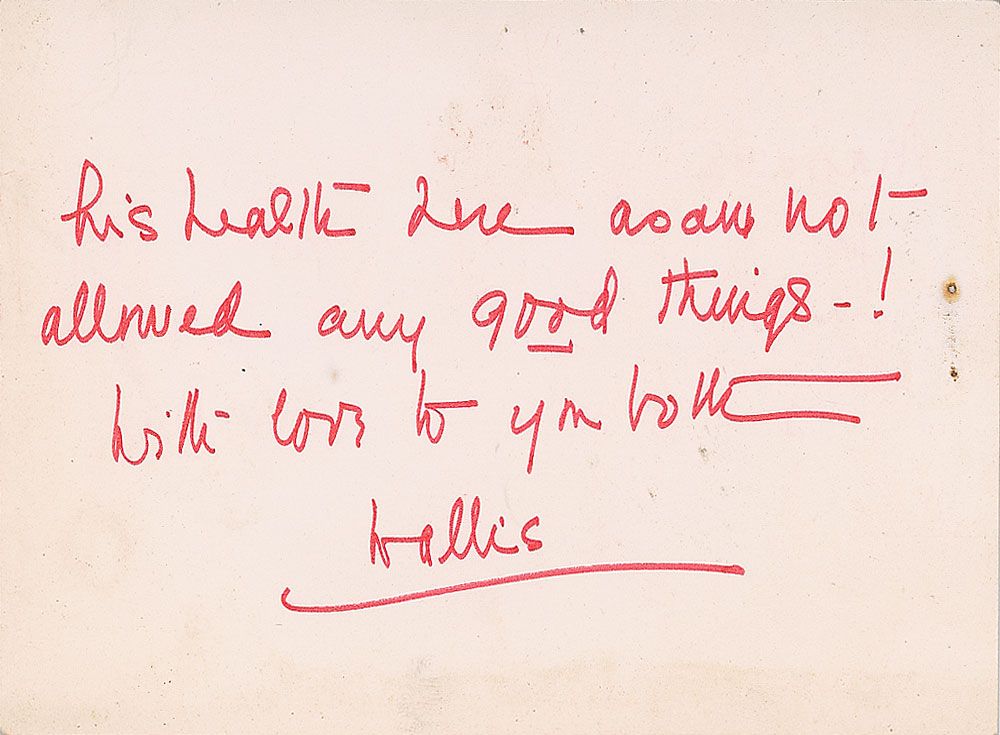 his health as am not
allowed any good things - !
With love to you both
Wallis